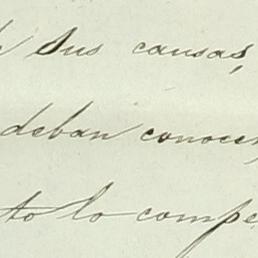 sus causas,
deban conocer,
to lo compe